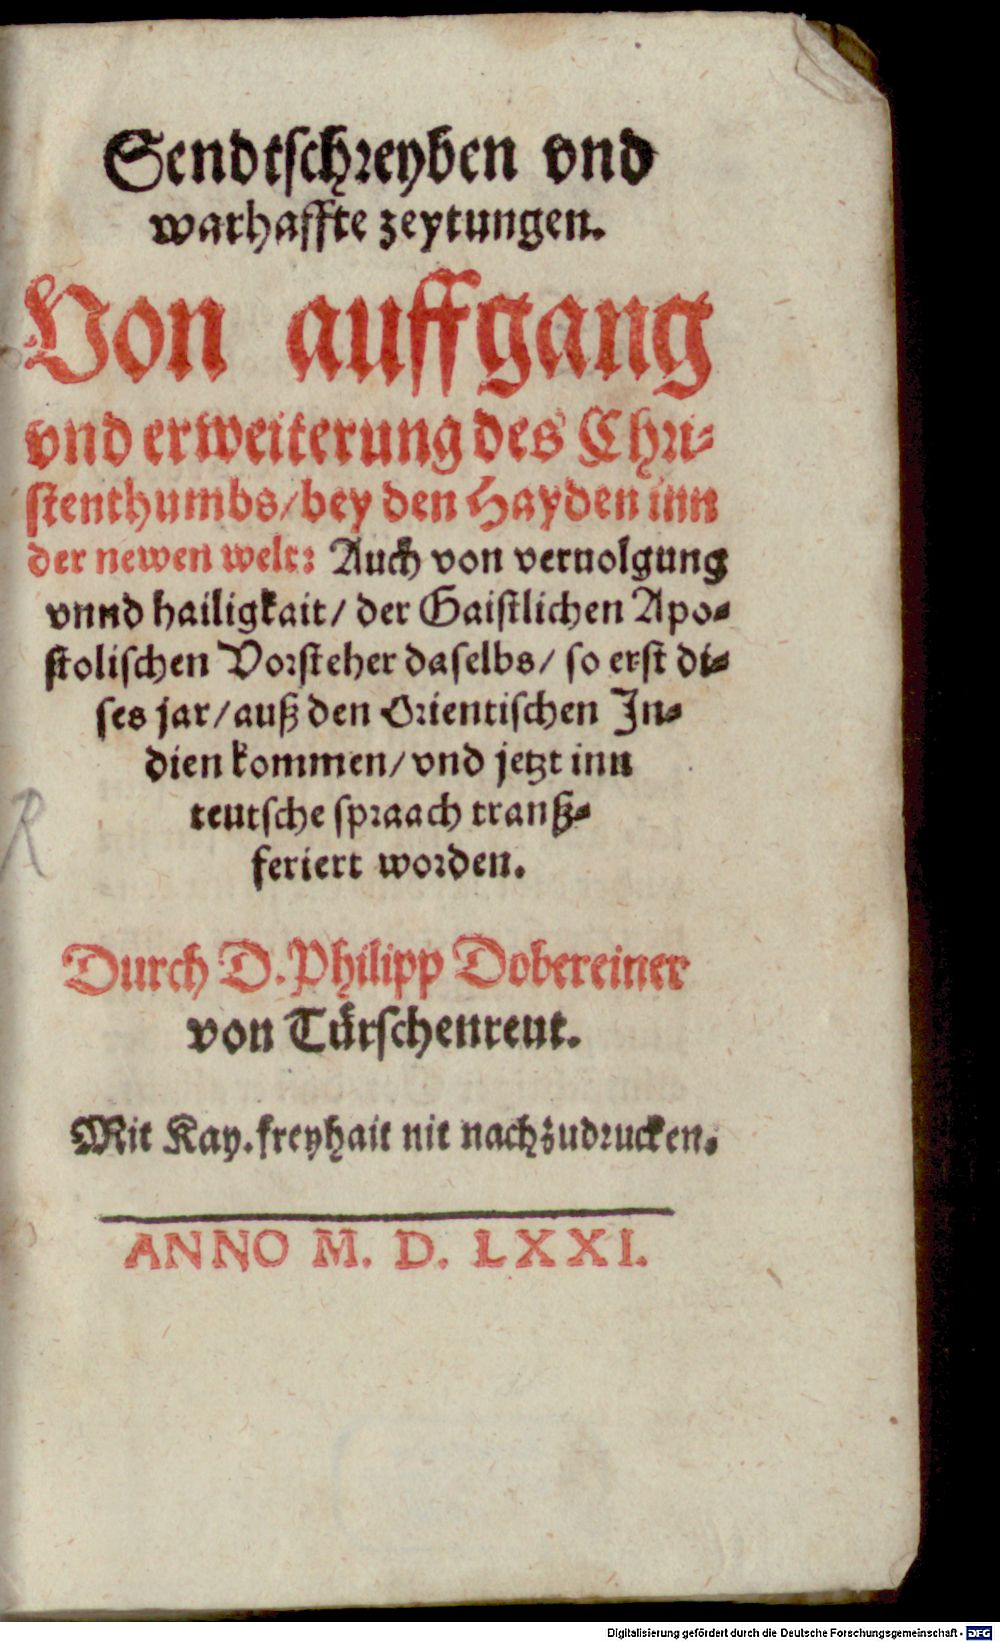 Sendtschreyben vnd
warhaffte zeytungen.
Von auffgang
vnd erweiterung des Chri-
stenthumbs/ bey den Hayden inn
der newen welt: Auch von veruolgung
vnnd hailigkait/ der Gaistlichen Apo-
stolischen Vorsteher daselbs/ so erst di-
ses jar/ auß den Orientischen In-
dien kommen/ vnd jetzt inn
teutsche spraach tranß-
feriert worden.
Durch D. Philipp Dobereiner
von Türschenreut.
Mit Kay. freyhait nit nachzudrucken.
ANNO M. D. LXXI.
R
Digitalisierung gefördert durch die Deutsche Forschungsgemeinschaft - DFG